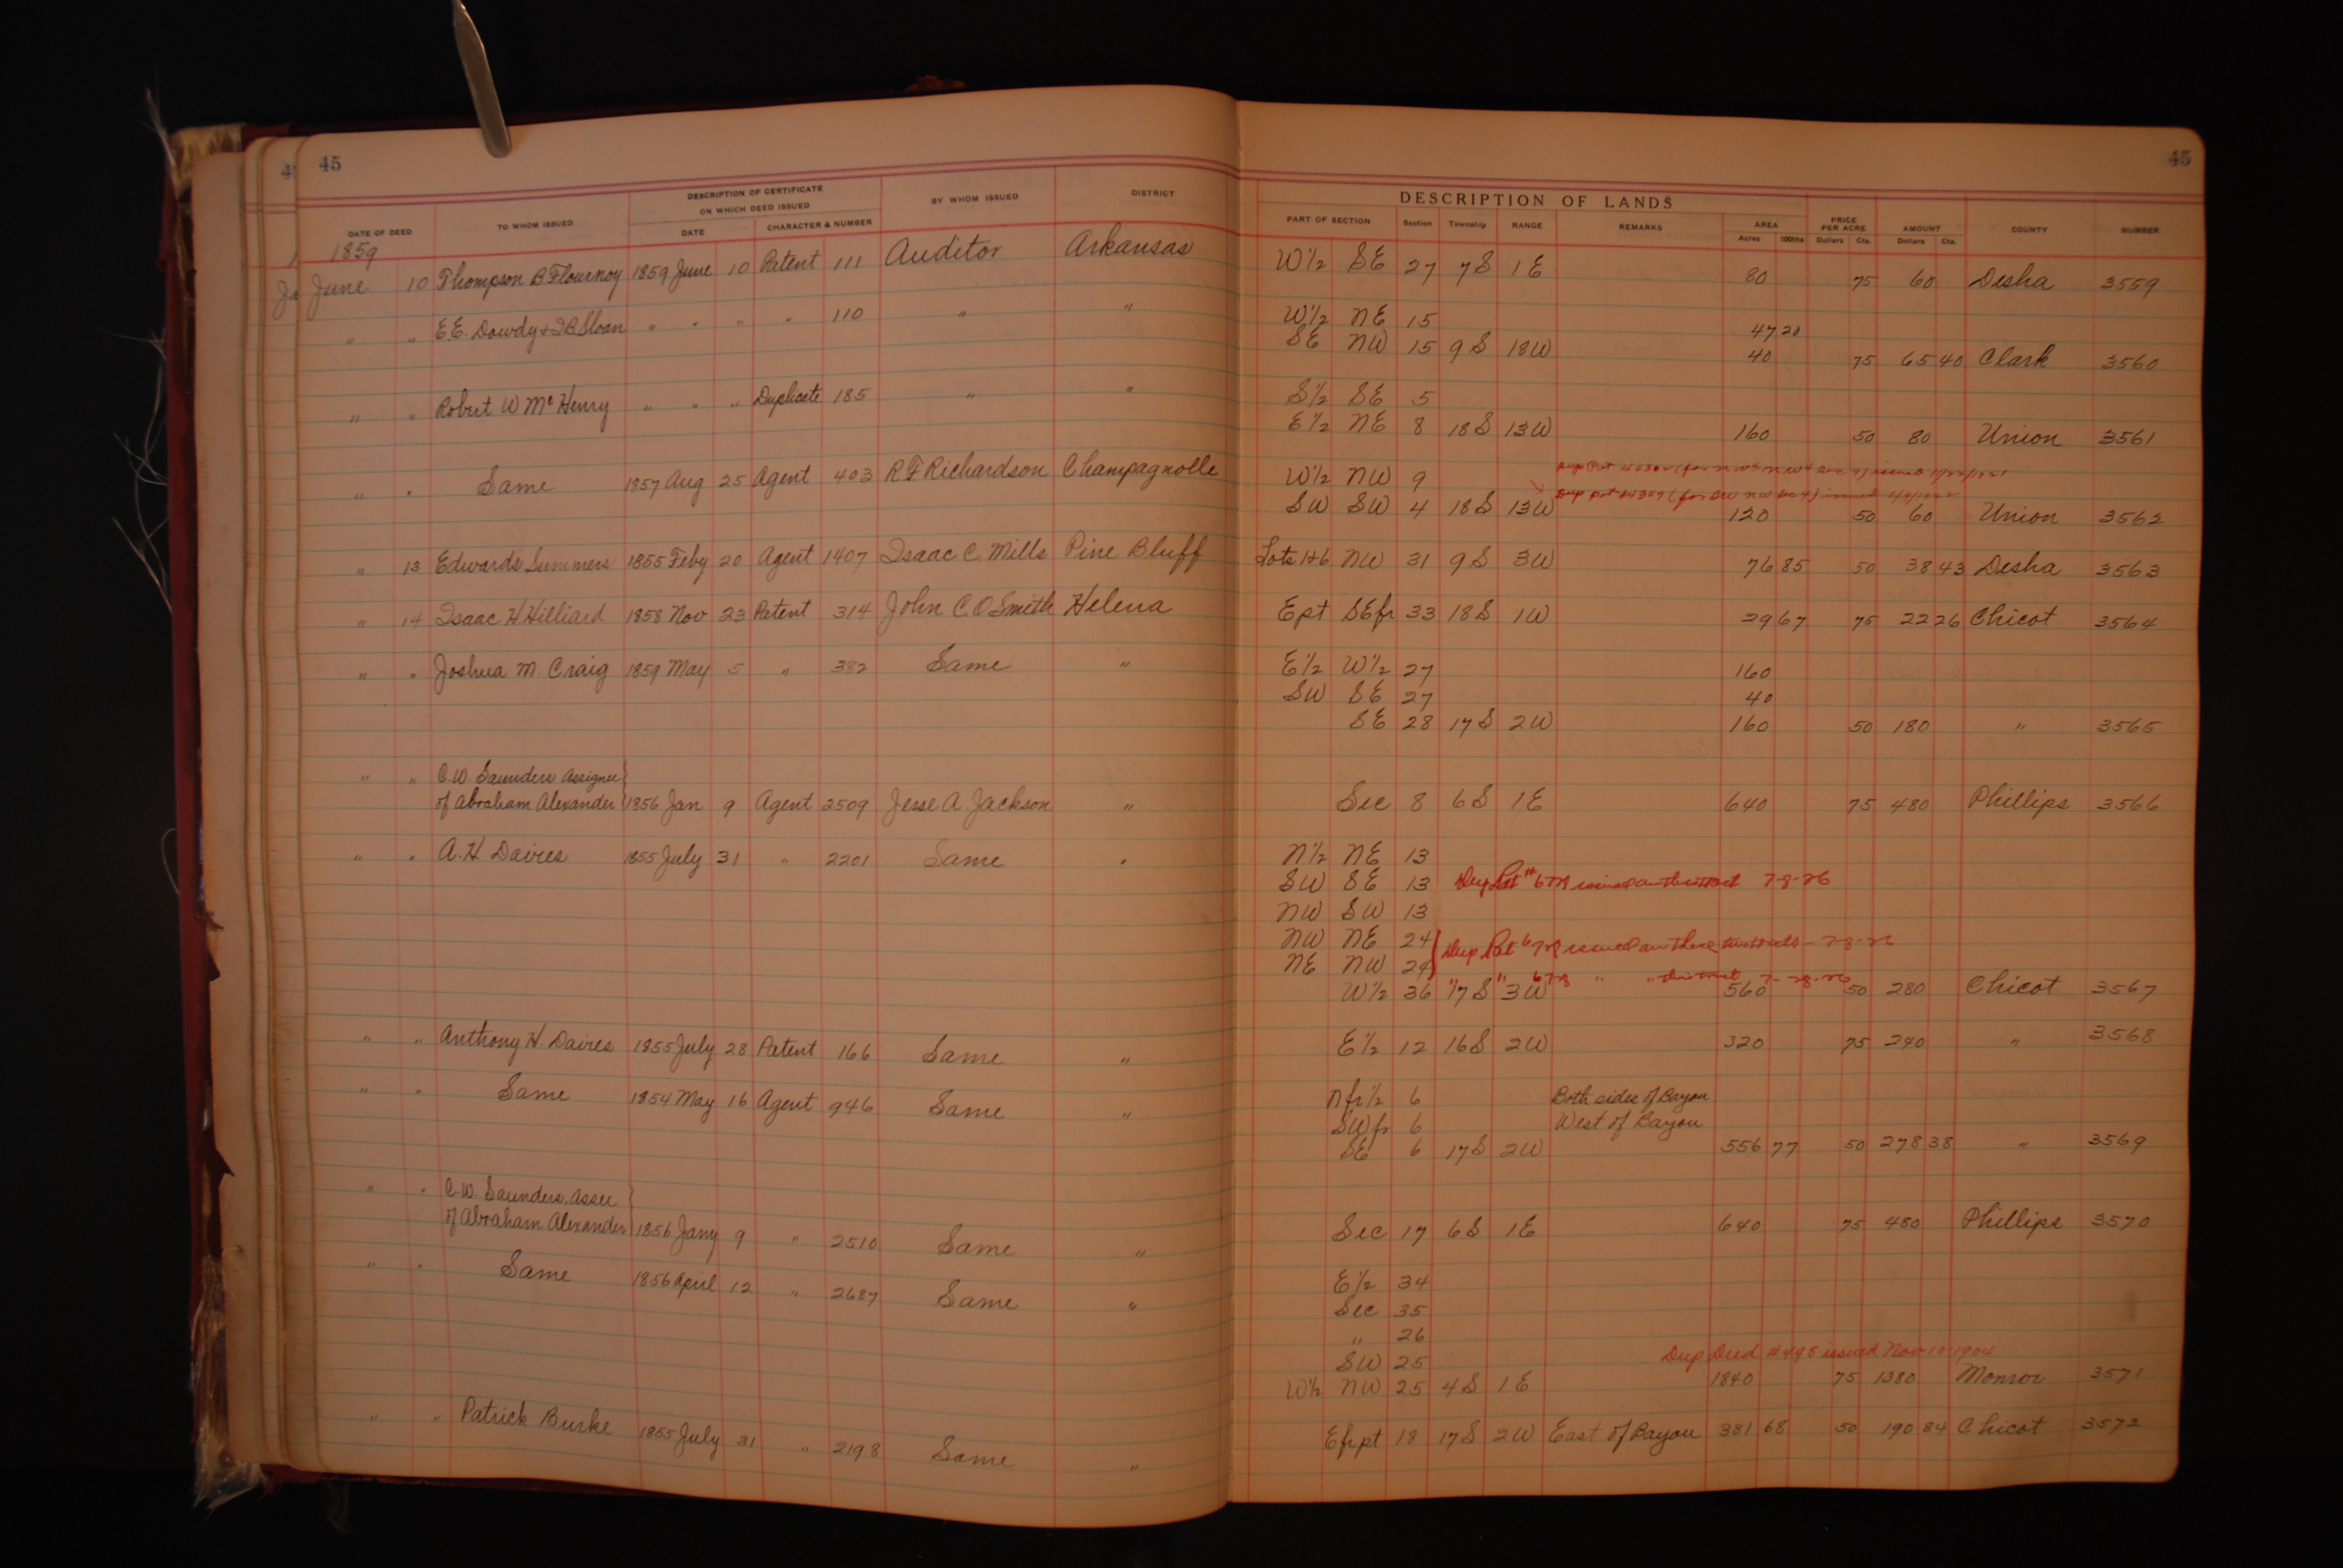 45
45
DESCRIPTION OF CERTIFICATE
ON WHICH DEED ISSUED
DESCRIPTION OF LANDS
DATE OF DEED TO WHOM ISSUED DATE CHARACTER & NUMBER BY WHOM ISSUED DISTRICT PART OF SECTION Section Township RANGE REMARKS AREA Acres 100ths PRICE PER ACRE Dollars Cts. AMOUNT Dollars Cts. COUNTY NUMBER
1859
June 10 Thompson B Flournoy 1859 June 10 Patent 111 Auditor Arkansas W½ SE 27 7S 1E 80 75 60 Desha 3559
" " E.E. Dowdy & I B Sloan " " " " 110 " " W½ NE 15 47 20
SE NW 15 9S 18W 40 75 65 40 Clark 3560
" " Robert W McHenry " " " Duplicate 185 " " S½ SE 5
E½ NE 8 18S 13W 160 50 80 Union 3561
" " Same 1857 Aug 25 Agent 403 R F Richardson Champagnolle W½ NW 9
SW SW 4 18S 13W 120 50 60 Union 3562
" 13 Edwards Summers 1855 Feby 20 Agent 1407 Isaac C. Mills Pine Bluff Lots 1&6 NW 31 9S 3W 76 85 50 38 43 Desha 3563
" 14 Isaac H Hilliard 1858 Nov 23 Patent 314 John C O Smith Helena Ept SEfr 33 18S 1W 29 67 75 22 26 Chicot 3564
" " Joshua M. Craig 1859 May 5 " 382 Same " E½ W½ 27 160
SW SE 27 40
SE 28 17S 2W 160 50 180 " 3565
" " C.W. Saunders Assignee
of Abraham Alexander 1856 Jan 9 Agent 2509 Jesse A. Jackson " Sec 8 6S 1E 640 75 480 Phillips 3566
" " A.H Davies 1855 July 31 " 2201 Same " N½ NE 13
SW SE 13 Dup Pat # issued on this tract 7-8-26
NW SW 13
NW NE 24
NE NW 24 Dup Pat issued on these two tracts
W½ 36 17S 3W " " " this tract 560 50 280 Chicot 3567
" " Anthony H Davies 1855 July 28 Patent 166 Same " E½ 12 16S 2W 320 75 240 " 3568
" " Same 1854 May 16 Agent 946 Same " Nfr½ 6 Both sides of Bayou
SWfr 6 West of Bayou
SE 6 17S 2W 556 77 50 278 38 " 3569
" " C.W. Saunders, Assee
of Abraham Alexander 1856 Jany 9 " 2510 Same " Sec 17 6S 1E 640 75 480 Phillips 3570
" " Same 1856 April 12 " 2687 Same " E½ 34
Sec 35
" 26
SW 25 Dup Deed #498 issued Nov 10 1904
W½ NW 25 4S 1E 1840 75 1380 Monroe 3571
" " Patrick Burke 1855 July 31 " 2198 Same " Efrpt 18 17S 2W East of Bayou 381 68 50 190 84 Chicot 3572